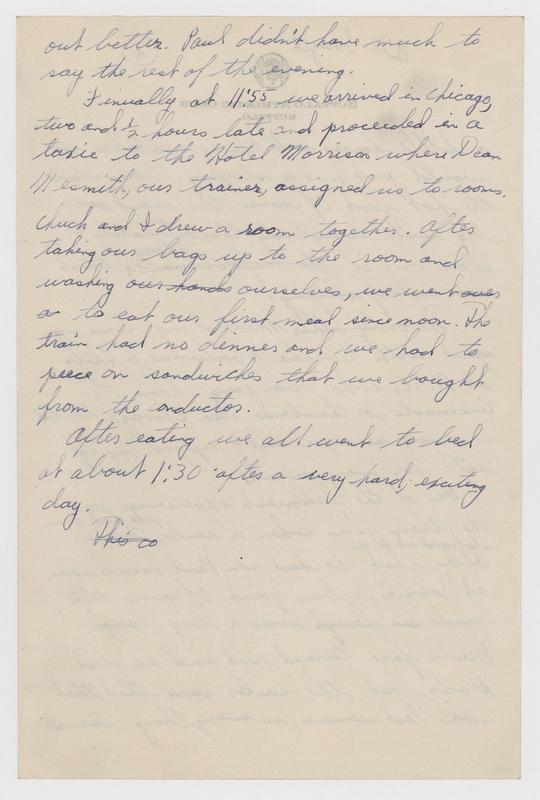 out better. Paul didn't have much to
say the rest of the evening.
Finually at 11:55 we arrived in Chicago,
two and ½ hours late and proceeded in a
taxie to the Hotel Morrison where Dean
Nesmith, our trainer, assigned us to rooms.
Chuck and I drew a room together. After
taking our bags up to the room and
washing our hands ourselves, we went over
a to eat our first meal since noon. The
train had no dinner and we had to
piece on sandwiches that we bought
from the conductor.
After eating we all went to bed
at about 1:30 after a very hard, exciting
day.
This co